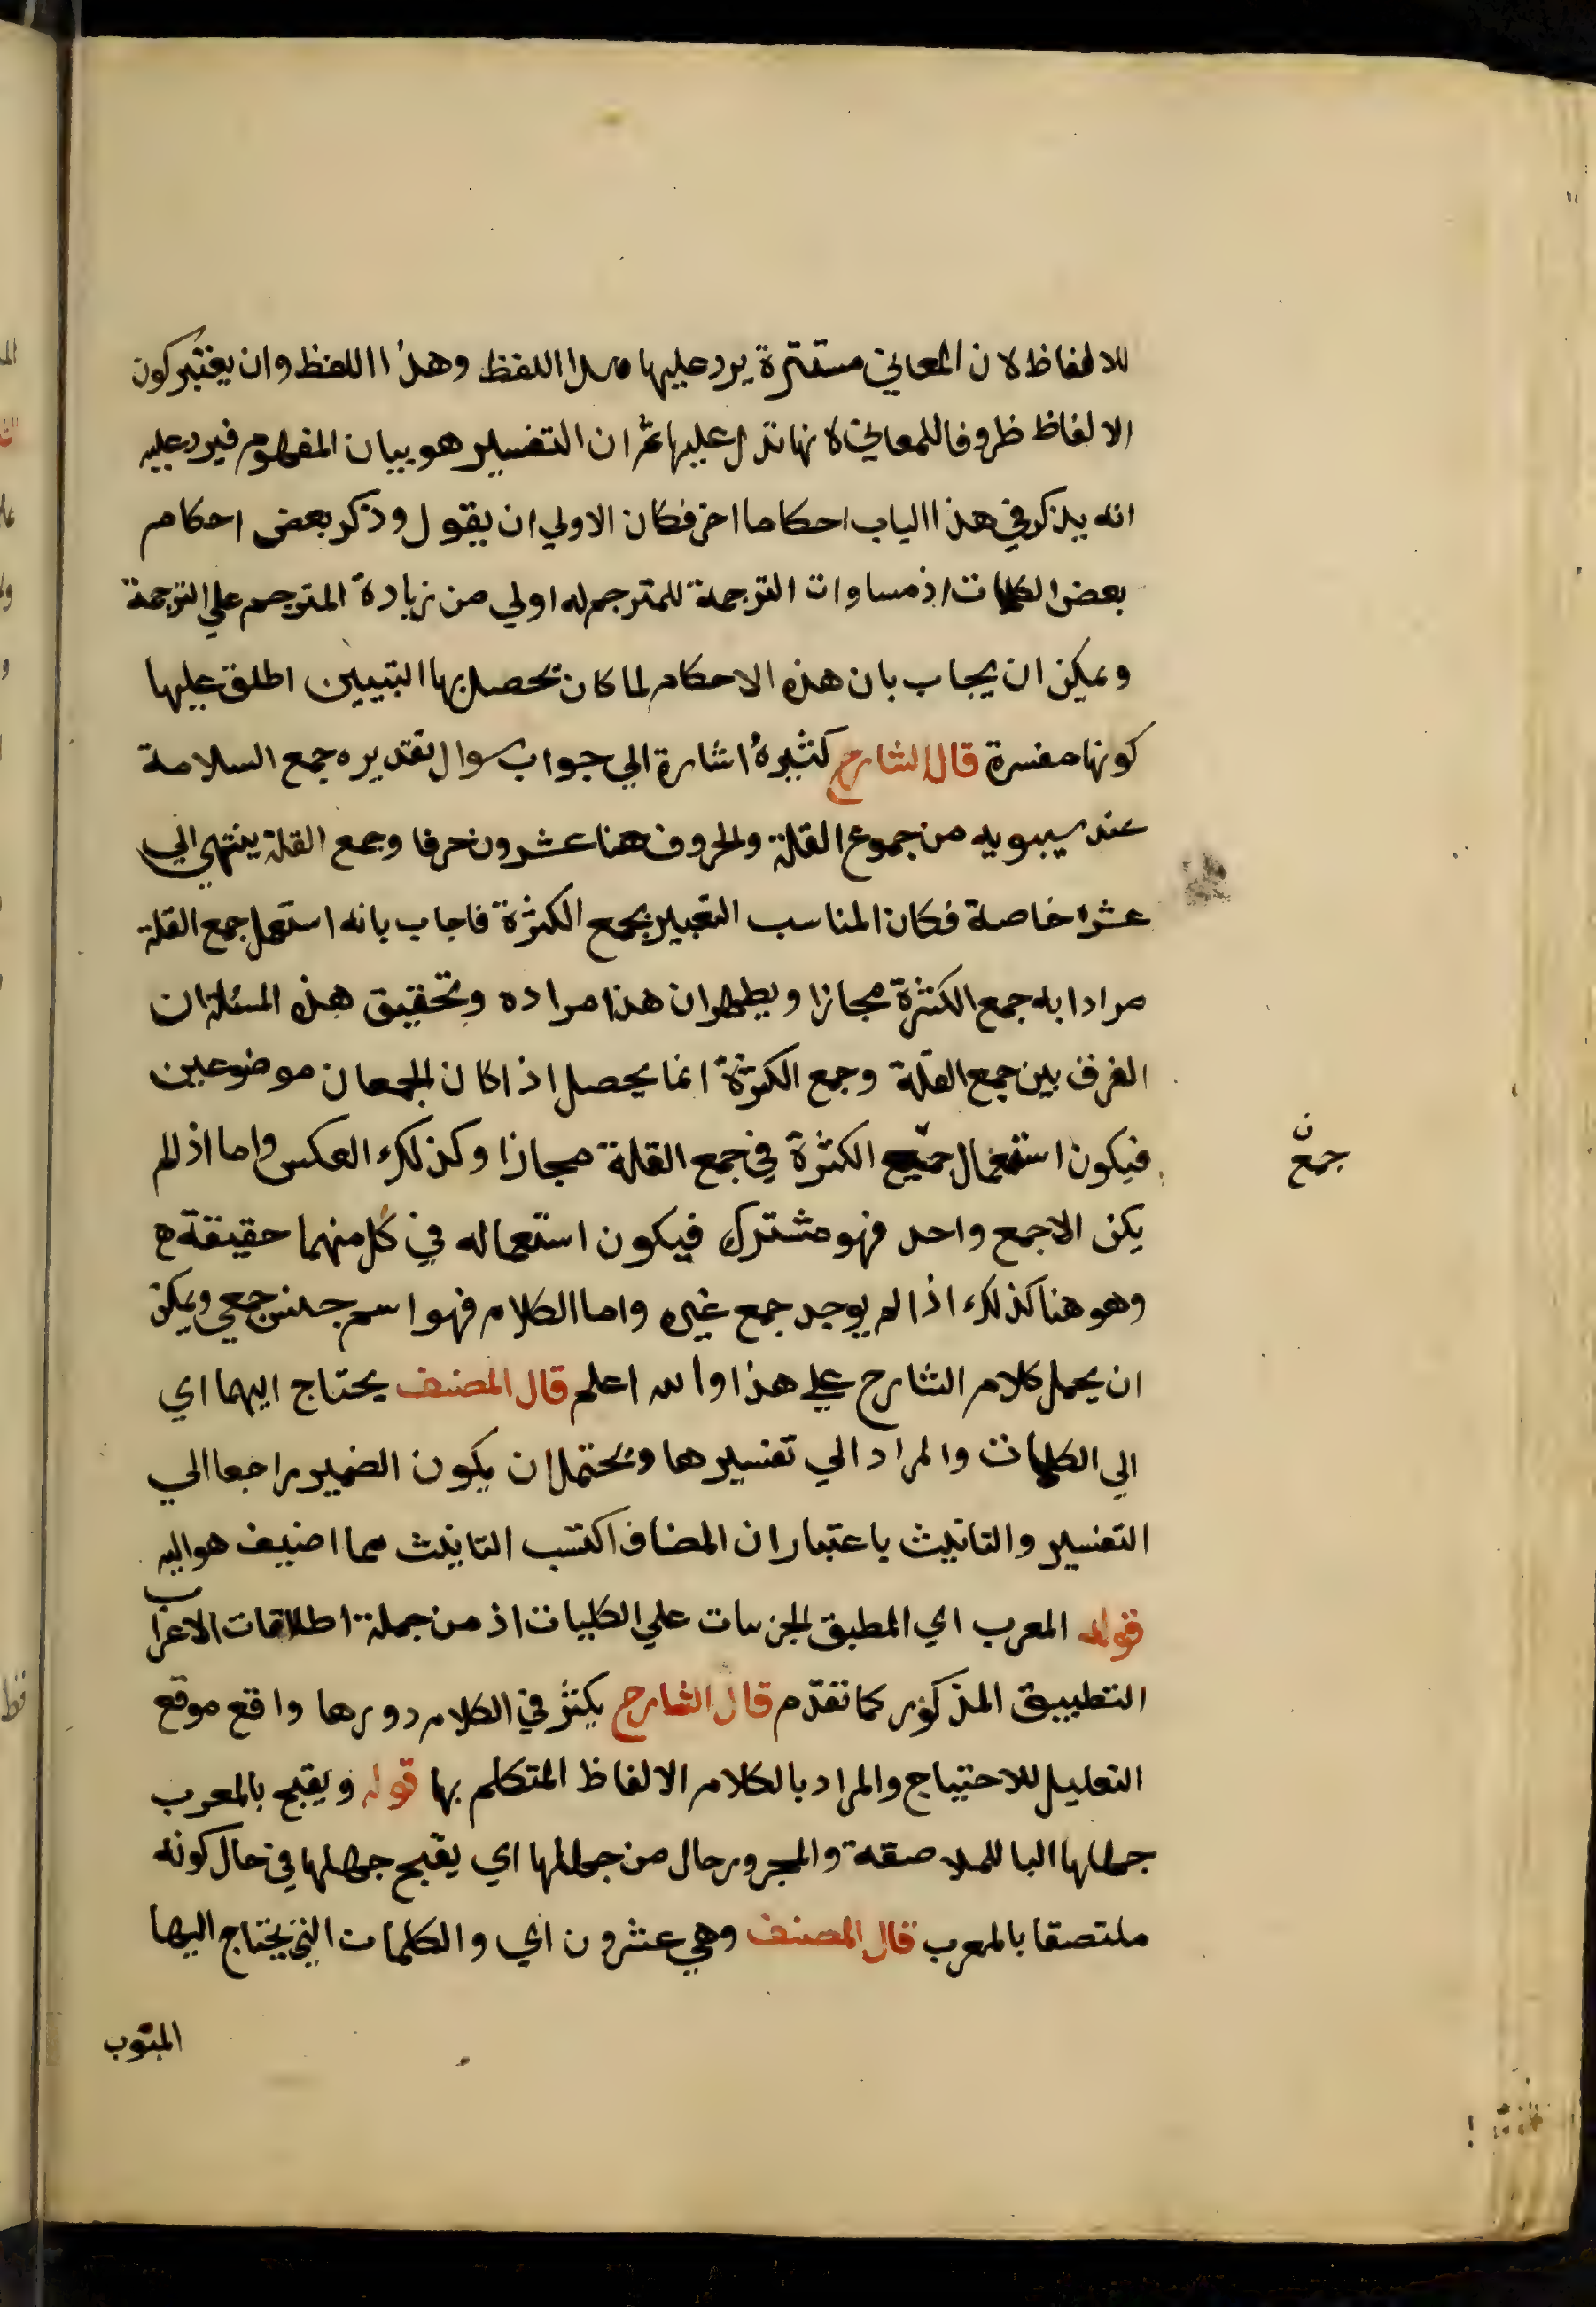 للالفاظ لان المعاني مستترة يرد عليها هذا اللفظ وهذا اللفظ وان يعتبر كون
الالفاظ ظروفا للمعاني لانها تدل عليها ثم ان التفسير هو بيان المفهوم فيرد عليه
انه يذكر في هذا الباب احكاما اخر فكان الاولي ان يقول وذكر بعض احكام
بعض الكلمات اذ مساوات الترجمة للمترجم له اولي من زيادة المترجم علي الترجمة
ويمكن ان يجاب بان هذه الاحكام لما كان تحصل بها التبيين اطلق عليها
كونها مفسرة قال الشارح كثيرة اشارة الي جواب سوال تقديره جمع السلامة
عند سيبويه من جموع القلة والحروف هنا عشرون حرفا وجمع القلة ينتهي الي
عشرة خاصة فكان المناسب التعبير بجمع الكثرة فاجاب بانه استعمل جمع القلة
مرادا به جمع الكثرة مجازا ويظهر ان هذا مراده وتحقيق هذه المسئلة ان
الفرق بين جمع القلة وجمع الكثرة انما يحصل اذا كان الجمعان موضوعين
فيكون استعمال جميع الكثرة في جمع القلة مجازا وكذلك العكس واما اذا لم
جمع ن
يكن الا جمع واحد فهو مشترك فيكون استعماله في كل منهما حقيقة ه
وهو هنا كذلك اذا لم يوجد جمع غيره واما الكلام فهو اسم جنس جمعي ويمكن
ان يحمل كلام الشارح علي هذا والله اعلم قال المصنف يحتاج اليهما اي
الي الكلمات والمراد الي تفسيرها ويحتمل ان يكون الضمير راجعا الي
التفسير والتانيث باعتبار ان المضاف اكتسب التانيث مما اضيف هو اليه
قوله المعرب اي المطبق الجزيات علي الكليات اذ من جملة اطلاقات الاعراب
التطبيق المذكور كما تقدم قال الشارح يكثر في الكلام دورها واقع موقع
التعليل للاحتياج والمراد بالكلام الالفاظ المتكلم بها قوله ويقبح بالمعرب
جهلها البا للملاصقة والمجرور حال من جهلها اي يقبح جهلها في حال كونه
ملتصقا بالمعرب قال المصنف وهي عشرون اي والكلمات التي يحتاج اليها
المبوب